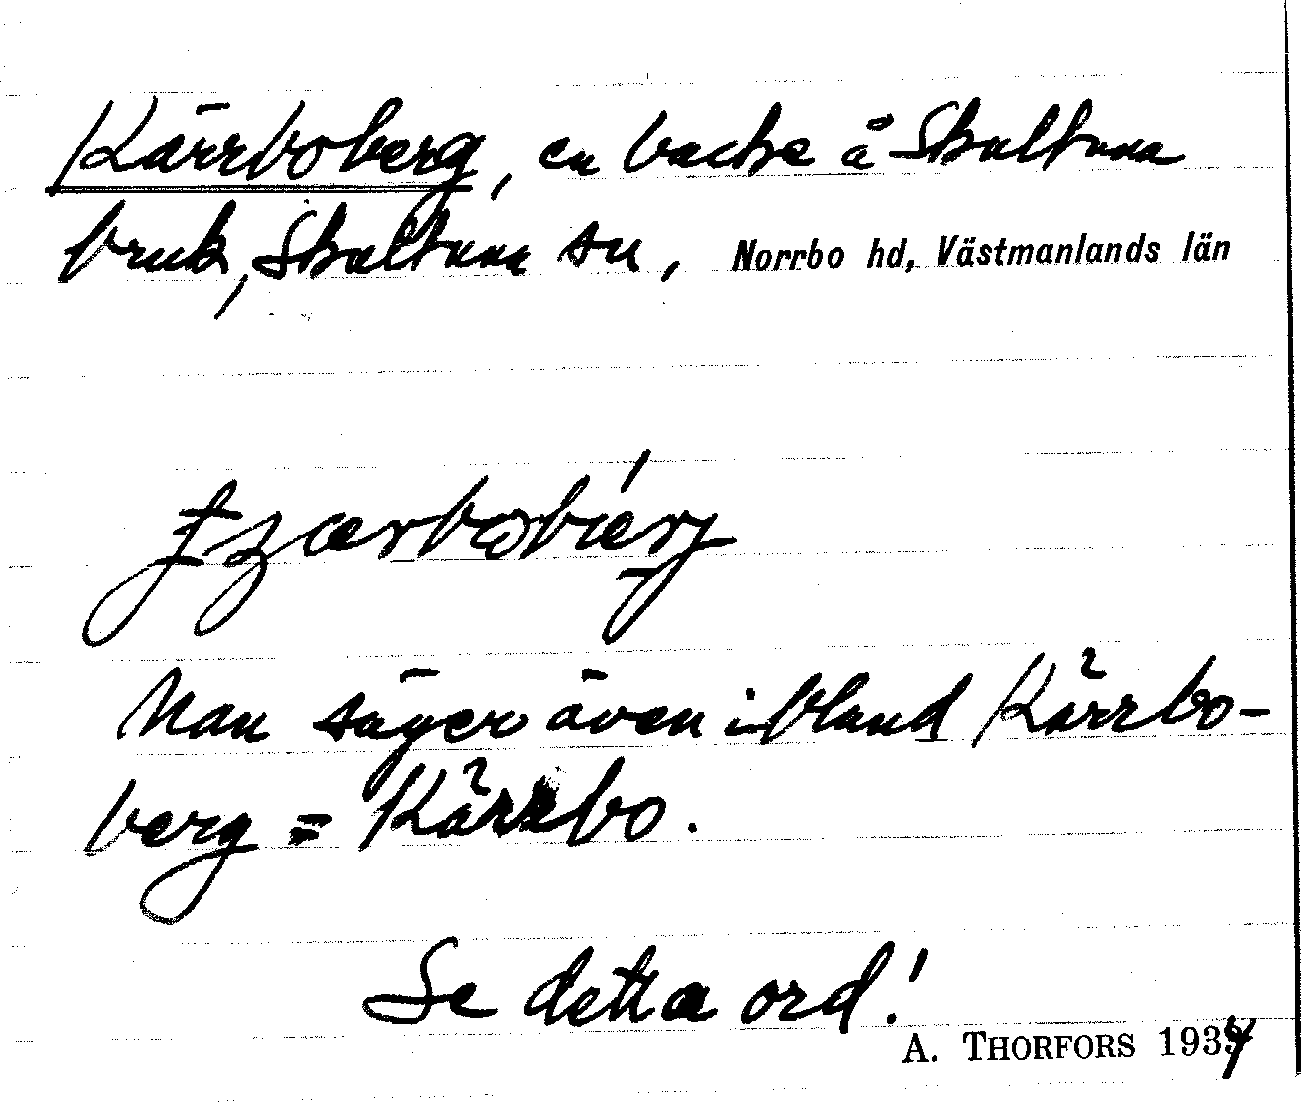 Kärrboberg, en backe å Skultuna
bruk, Skultuna sn, Norrbo hd, Västmanlands län
Man säger även ibland Kärrbo-
berg = Kärrbo.
Se detta ord!
A. THORFORS 1934